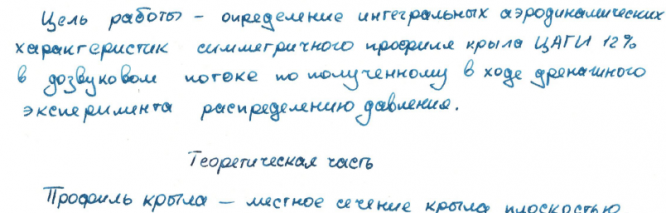 Цель работы – определение интегральных аэродинамических
характеристик симметричного профиля крыла ЦАГИ 12%
в дозвуковом потоке по полученному в ходе дренажного
эксперимента распределению давления.
Теоретическая часть
Профиль крыла – местное сечение крыла плоскостью